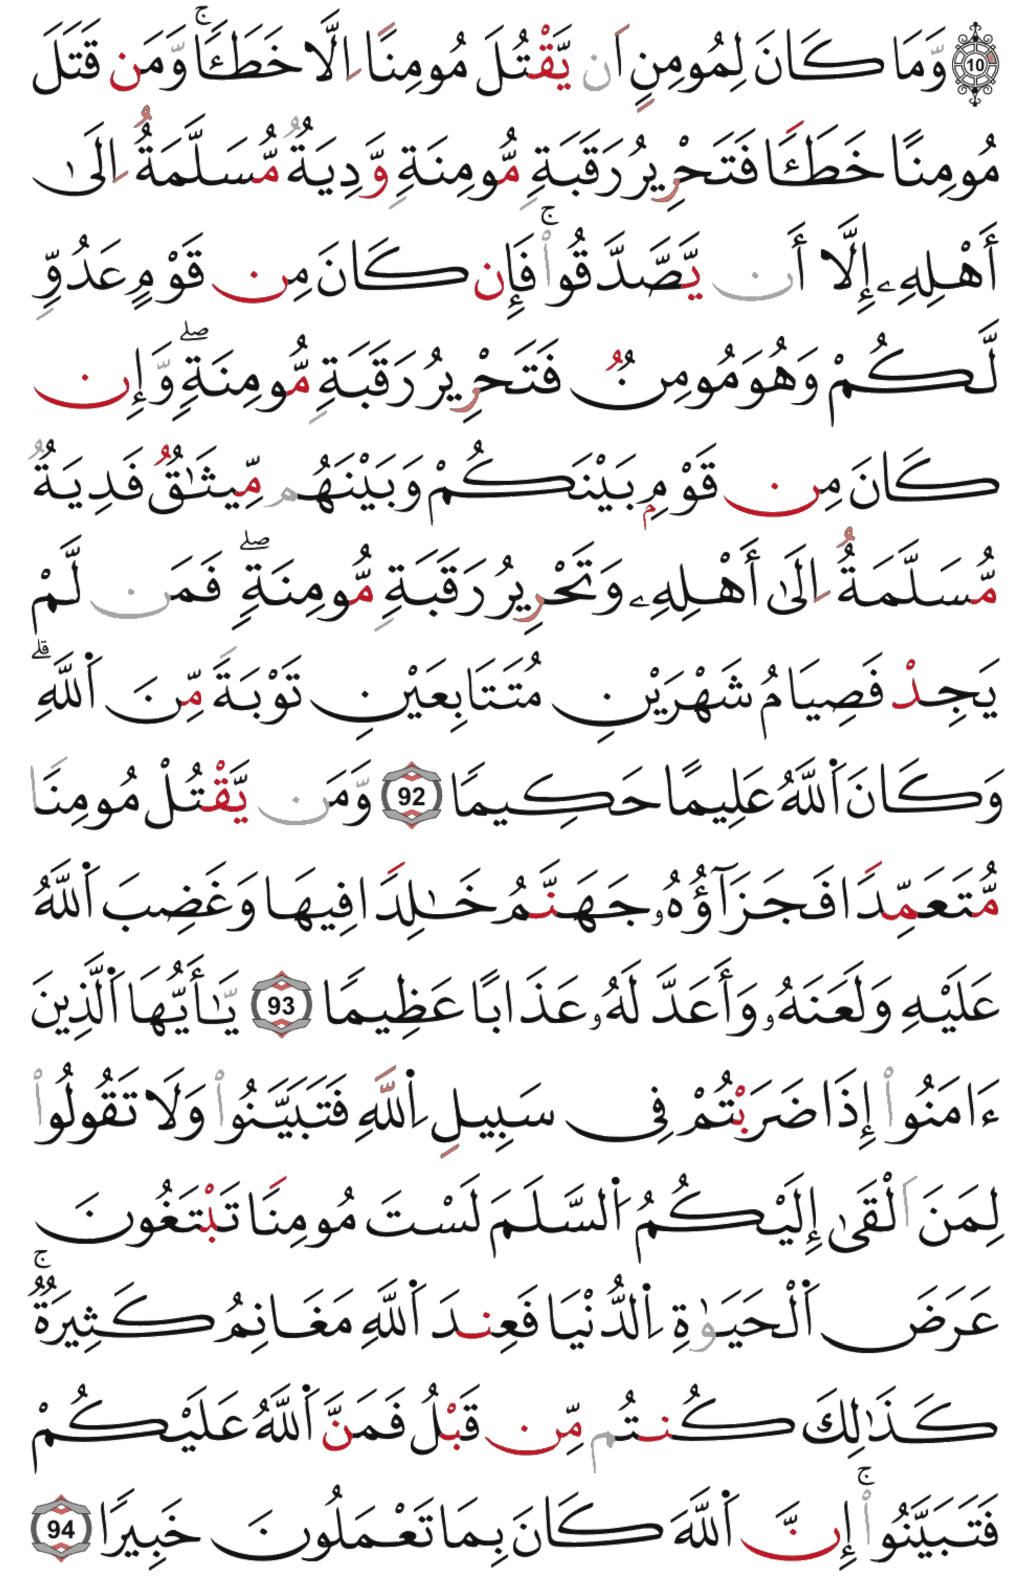 10 وَّمَا كَانَ لِمُومِنٍ اَن يَّقْتُلَ مُومِنًا اِلَّا خَطَـًٔا ۚ وَّمَن قَتَلَ
مُومِنًا خَطَـًٔا فَتَحْرِيرُ رَقَبَةٍ مُّومِنَةٍ وَّدِيَةٌ مُّسَلَّمَةٌ اِلَىٰ
أَهْلِهِۦ إِلَّا أَن يَّصَّدَّقُوا۟ ۚ فَإِن كَانَ مِن قَوْمٍ عَدُوٍّ
لَّكُمْ وَهُوَ مُومِنٌ فَتَحْرِيرُ رَقَبَةٍ مُّومِنَةٍ ۖ وَّإِن
كَانَ مِن قَوْمِۭ بَيْنَكُمْ وَبَيْنَهُم مِّيثَٰقٌ فَدِيَةٌ
مُّسَلَّمَةٌ اِلَىٰ أَهْلِهِۦ وَتَحْرِيرُ رَقَبَةٍ مُّومِنَةٍ ۖ فَمَن لَّمْ
يَجِدْ فَصِيَامُ شَهْرَيْنِ مُتَتَابِعَيْنِ تَوْبَةً مِّنَ اَ۬للَّهِ ۗ
وَكَانَ اَ۬للَّهُ عَلِيمًا حَكِيمًا 92 وَّمَن يَّقْتُلْ مُومِنًا
مُّتَعَمِّدًا فَجَزَآؤُهُۥ جَهَنَّمُ خَٰلِدًا فِيهَا وَغَضِبَ اَ۬للَّهُ
عَلَيْهِ وَلَعَنَهُۥ وَأَعَدَّ لَهُۥ عَذَابًا عَظِيمًا 93 يَّٰأَيُّهَا اَ۬لَّذِينَ
ءَامَنُوا۟ إِذَا ضَرَبْتُمْ فِى سَبِيلِ اِ۬للَّهِ فَتَبَيَّنُوا۟ وَلَا تَقُولُوا۟
لِمَنَ اَلْقَىٰ إِلَيْكُمُ اُ۬لسَّلَمَ لَسْتَ مُومِنًا تَبْتَغُونَ
عَرَضَ اَ۬لْحَيَوٰةِ اِ۬لدُّنْيَا فَعِندَ اَ۬للَّهِ مَغَانِمُ كَثِيرَةٌ ۚ
كَذَٰلِكَ كُنتُم مِّن قَبْلُ فَمَنَّ اَ۬للَّهُ عَلَيْكُمْ
فَتَبَيَّنُوا۟ ۚ إِنَّ اَ۬للَّهَ كَانَ بِمَا تَعْمَلُونَ خَبِيرًا 94